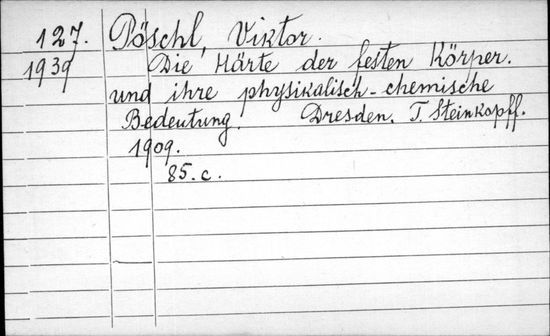 127. Pöschl, Viktor.
1939 Die Härte der festen Körper.
und ihre physikalisch-chemische
Bedeutung. Dresden. T. Steinkopff.
1909.
85. c.